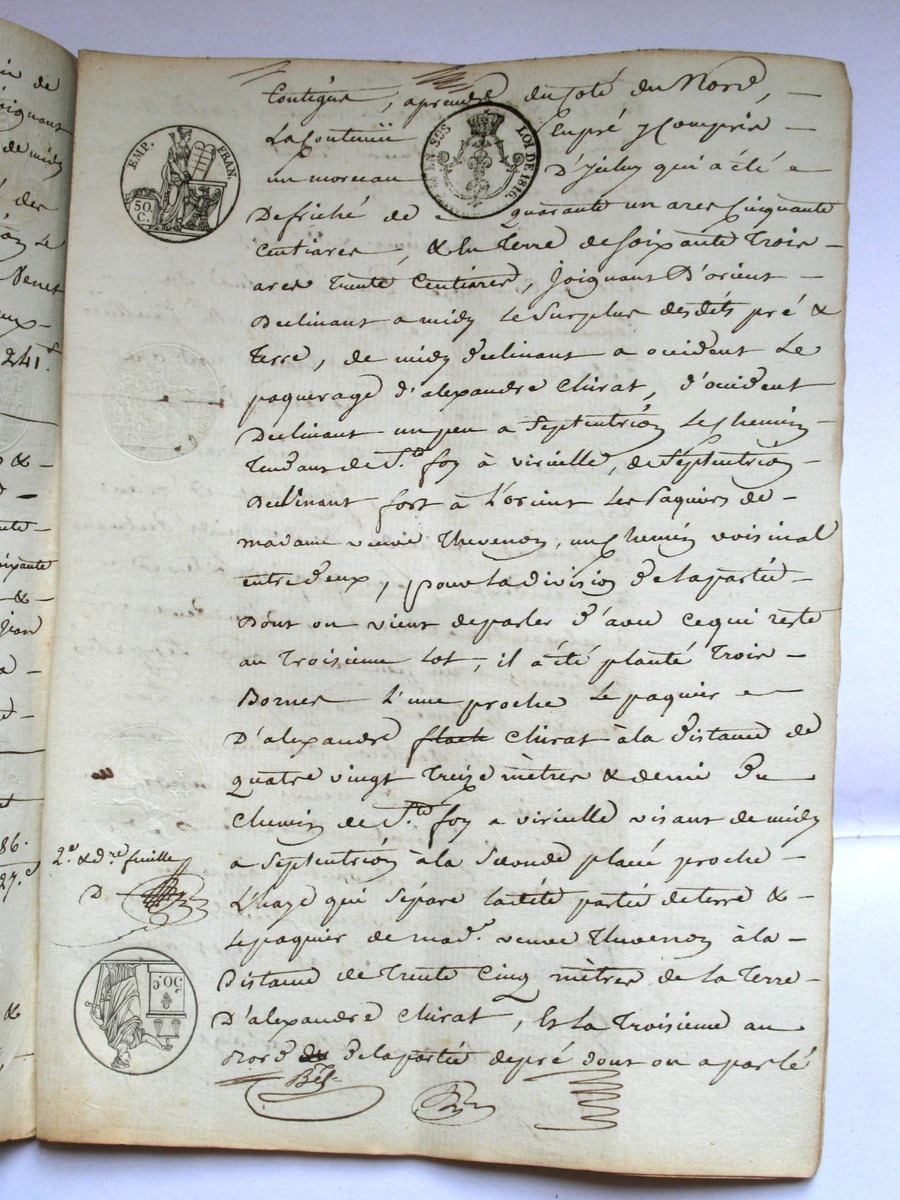 Contigus, aprendre du coté du Nord, —
La Contenüe Enpré y Compris —
un morceau D'
qui a été
Defriché de quarante un ares Cinquante
Centiares, & En Terre de soixante Trois
ares Trente Centiares, joignant D'orient —
Declinant a midy Le Surplus desdits pré &
Terre, de midy declinant a occident Le
paquerage d'alexandre Chirat, d'occident
Declinant un peu a Septentrion Le Chemin
Tendant de S.te foy à virieille, de Septentrion —
Declinant fort à L'orient Les Paquiers de —
madame veuve Thevenon, un Chemin voisinal
entre deux, pour La division de La partie —
Dont on vient deparler d'avec cequi reste
au Troisieme Lot, il a été planté Trois —
Bornes L'une proche Le paquier
D'alexandre Chirat à la Distance de
quatre vingt Treize mètres & demi Du
Chemin de S.te foy a virieille visant de midy
a Septentrion à la Seconde placée proche —
L'haye qui Sépare Ladite partie deterre & —
Le paquier de mad.e veuve Thevenon à la —
Distance de Trente Cinq mètres de La Terre —
D'alexandre Chirat, Et La Troisieme au
Nord de la partie depré dont on a parlé
EMP. FRAN.
50 C.
EN SUS
LOI DE 1816.
2.e & d.re feuille
D
50 C
241.
de midy
86.
27.